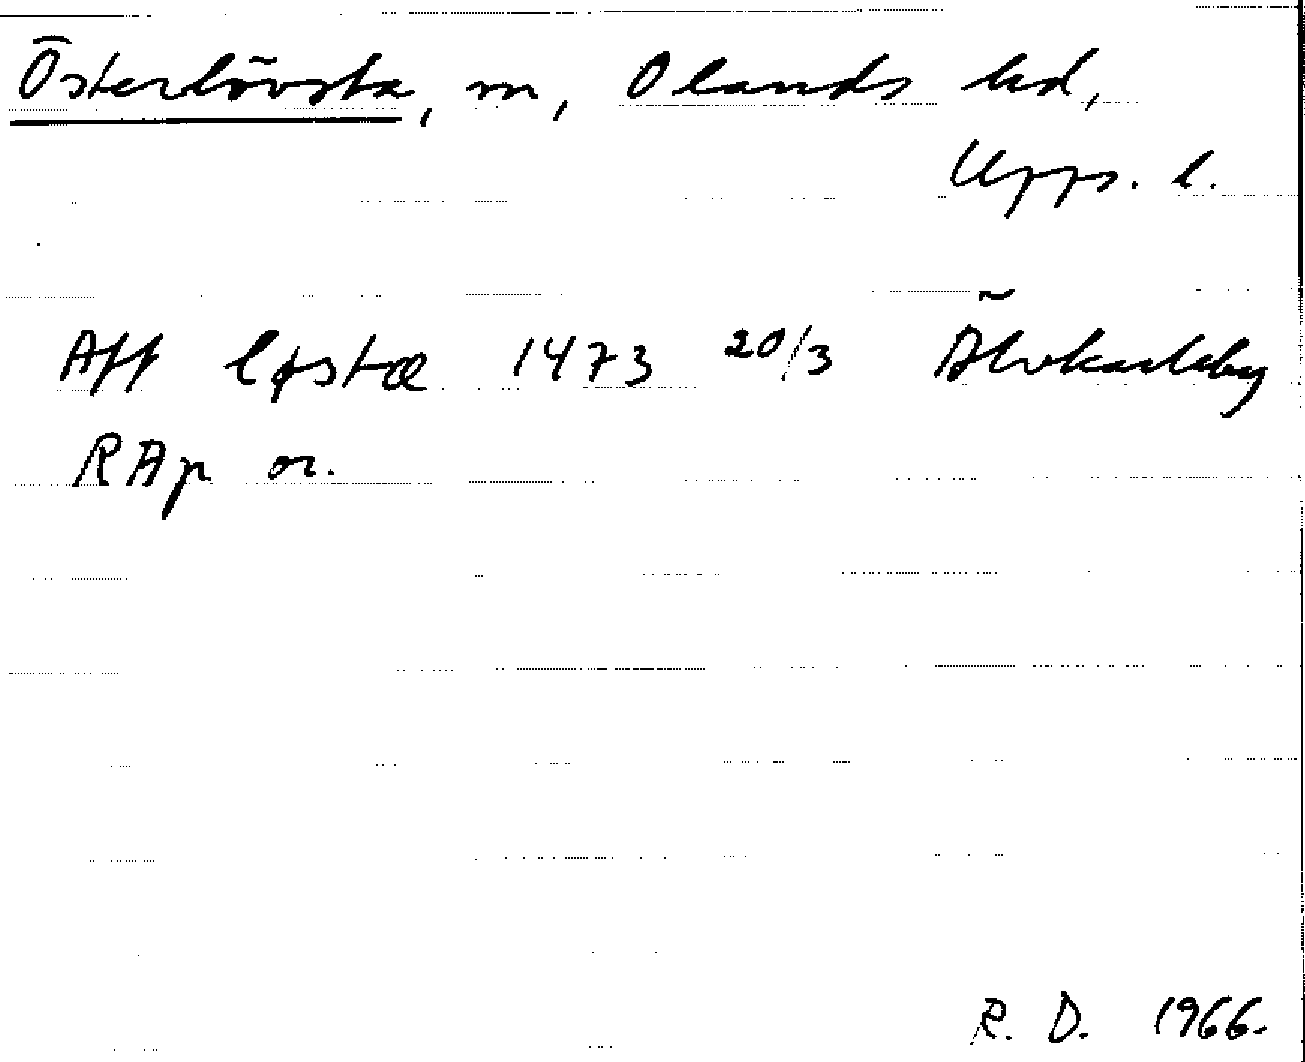 Österlövsta, sn, Olands hd,
Upps. l.
Aff Løstæ 1473 20/3 Älvkarleby
RAp or.
R. D. 1966.